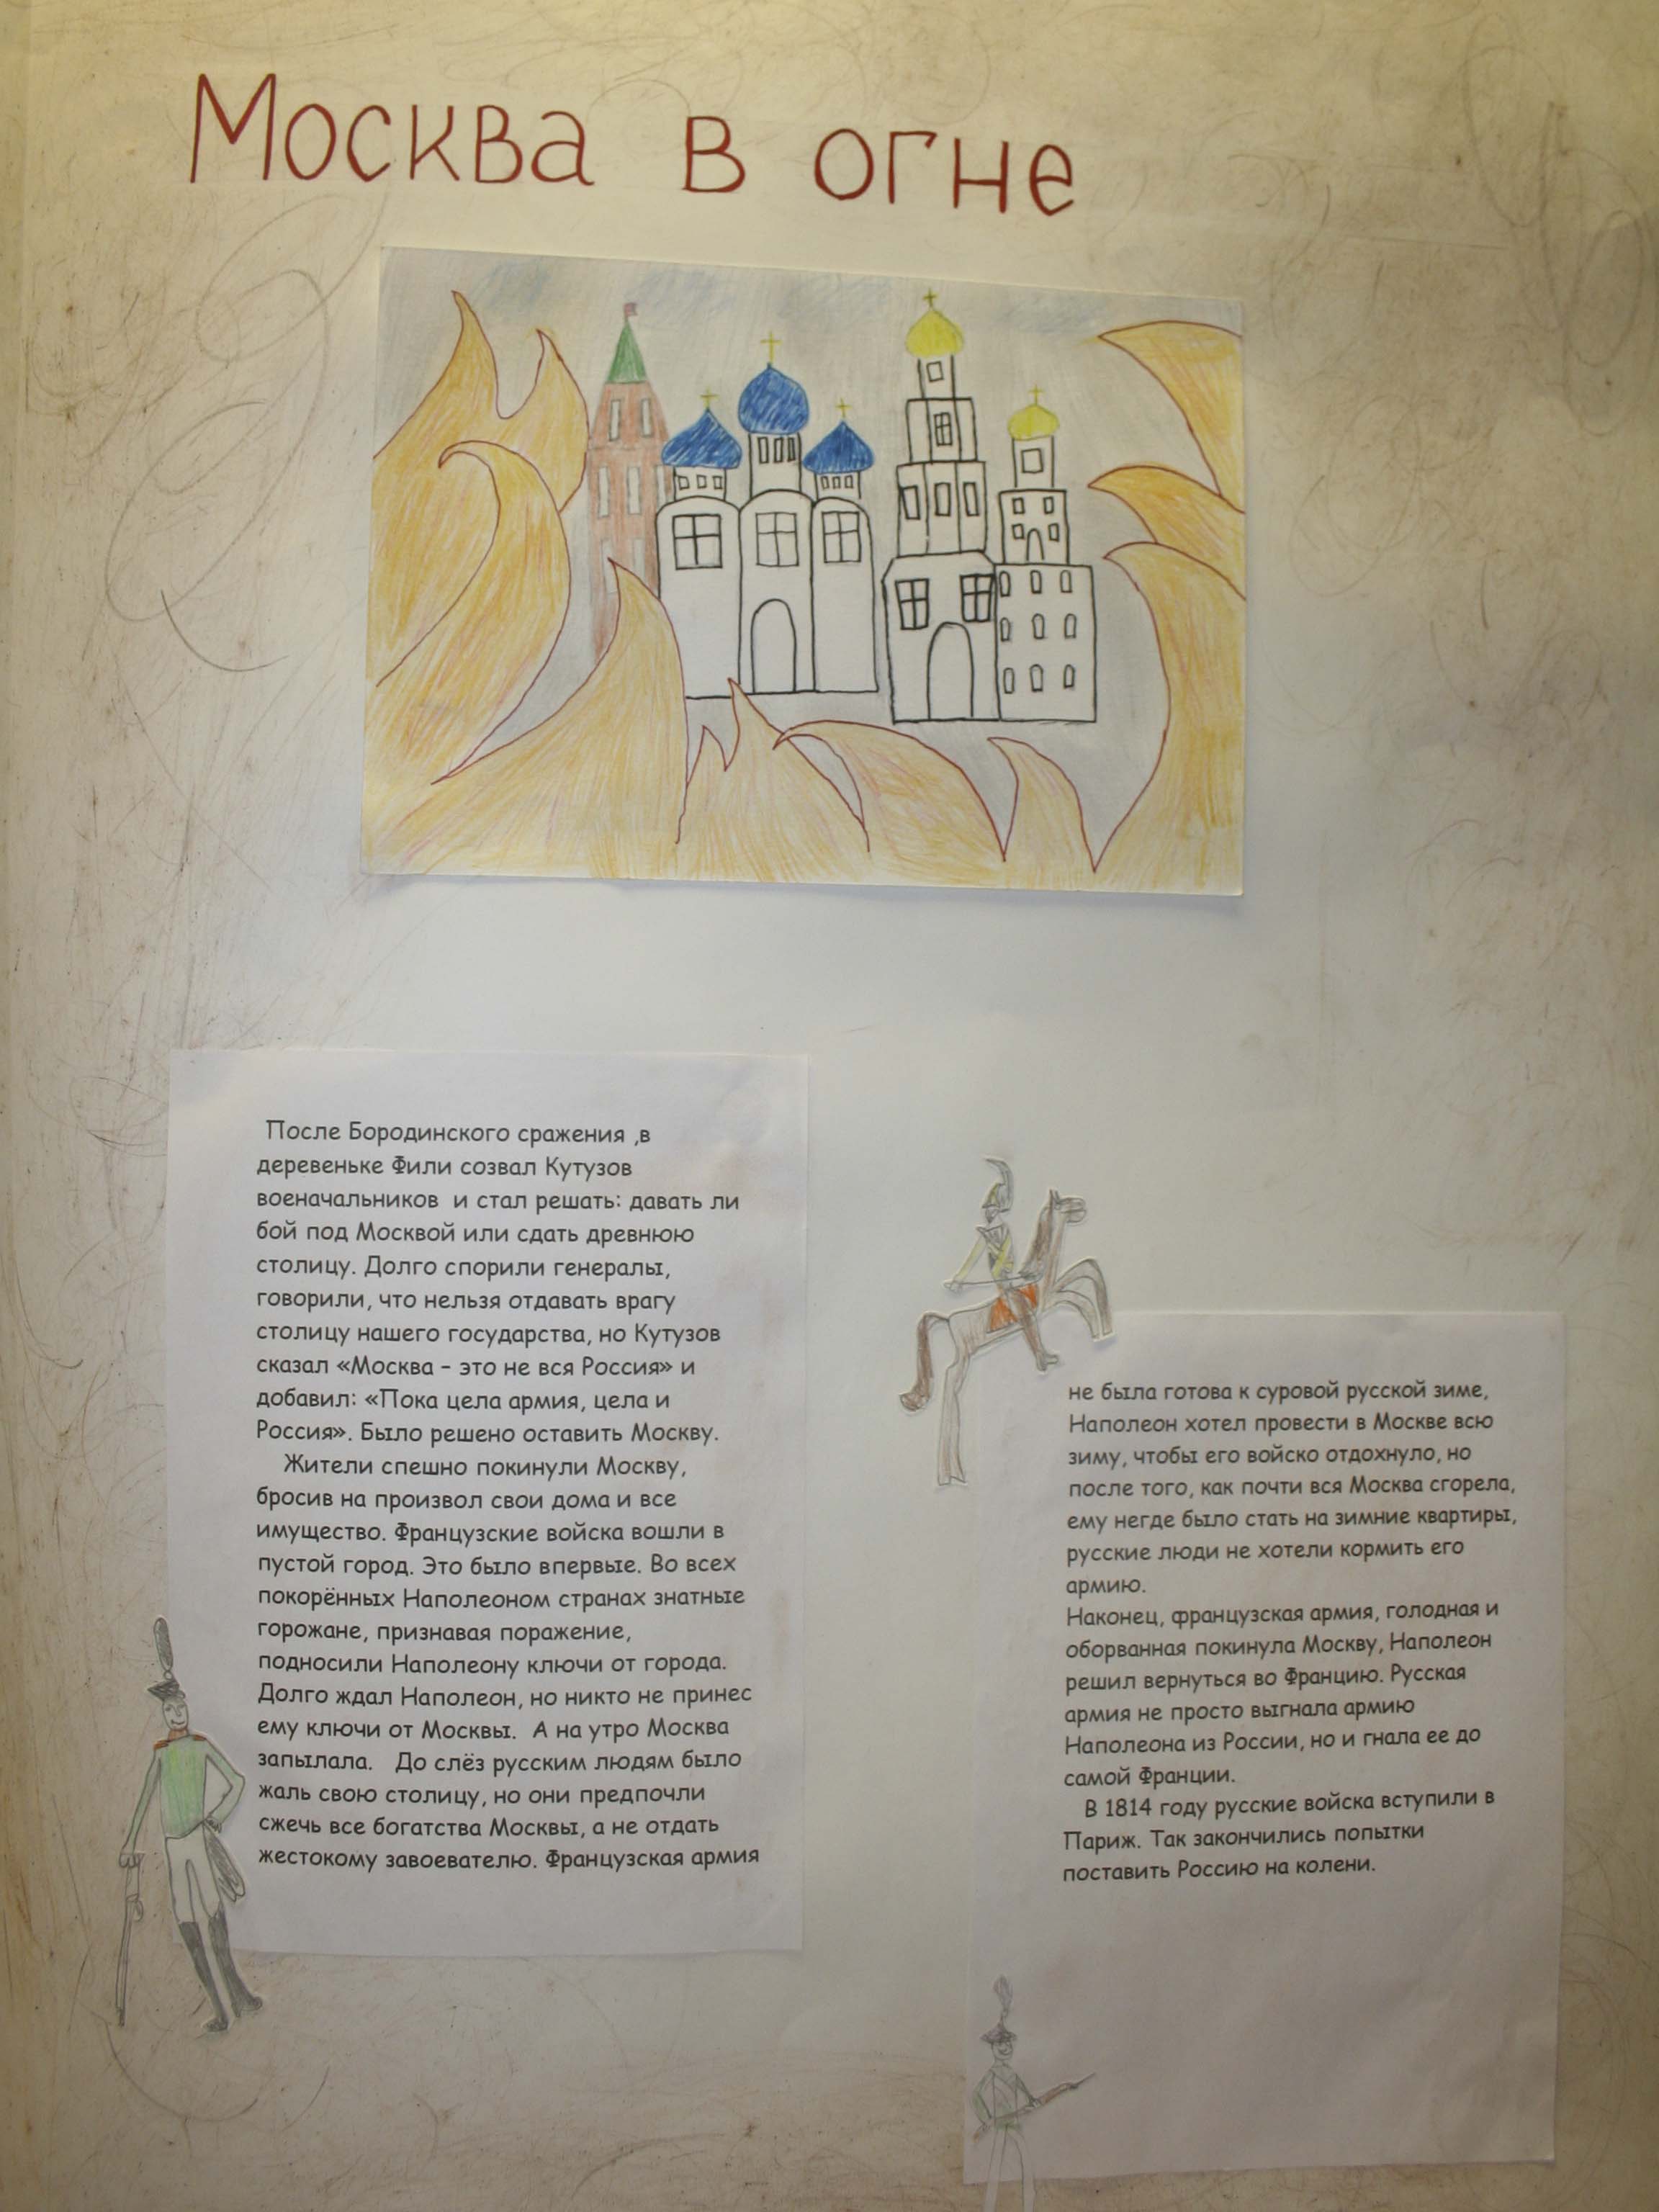 Москва в огне
После Бородинского сражения ,в
деревеньке Фили созвал Кутузов
военачальников и стал решать: давать ли
бой под Москвой или сдать древнюю
столицу. Долго спорили генералы,
говорили, что нельзя отдавать врагу
столицу нашего государства, но Кутузов
сказал «Москва – это не вся Россия» и
добавил: «Пока цела армия, цела и
Россия». Было решено оставить Москву.
Жители спешно покинули Москву,
бросив на произвол свои дома и все
имущество. Французские войска вошли в
пустой город. Это было впервые. Во всех
покорённых Наполеоном странах знатные
горожане, признавая поражение,
подносили Наполеону ключи от города.
Долго ждал Наполеон, но никто не принес
ему ключи от Москвы. А на утро Москва
запылала. До слёз русским людям было
жаль свою столицу, но они предпочли
сжечь все богатства Москвы, а не отдать
жестокому завоевателю. Французская армия
не была готова к суровой русской зиме,
Наполеон хотел провести в Москве всю
зиму, чтобы его войско отдохнуло, но
после того, как почти вся Москва сгорела,
ему негде было стать на зимние квартиры,
русские люди не хотели кормить его
армию.
Наконец, французская армия, голодная и
оборванная покинула Москву, Наполеон
решил вернуться во Францию. Русская
армия не просто выгнала армию
Наполеона из России, но и гнала ее до
самой Франции.
В 1814 году русские войска вступили в
Париж. Так закончились попытки
поставить Россию на колени.